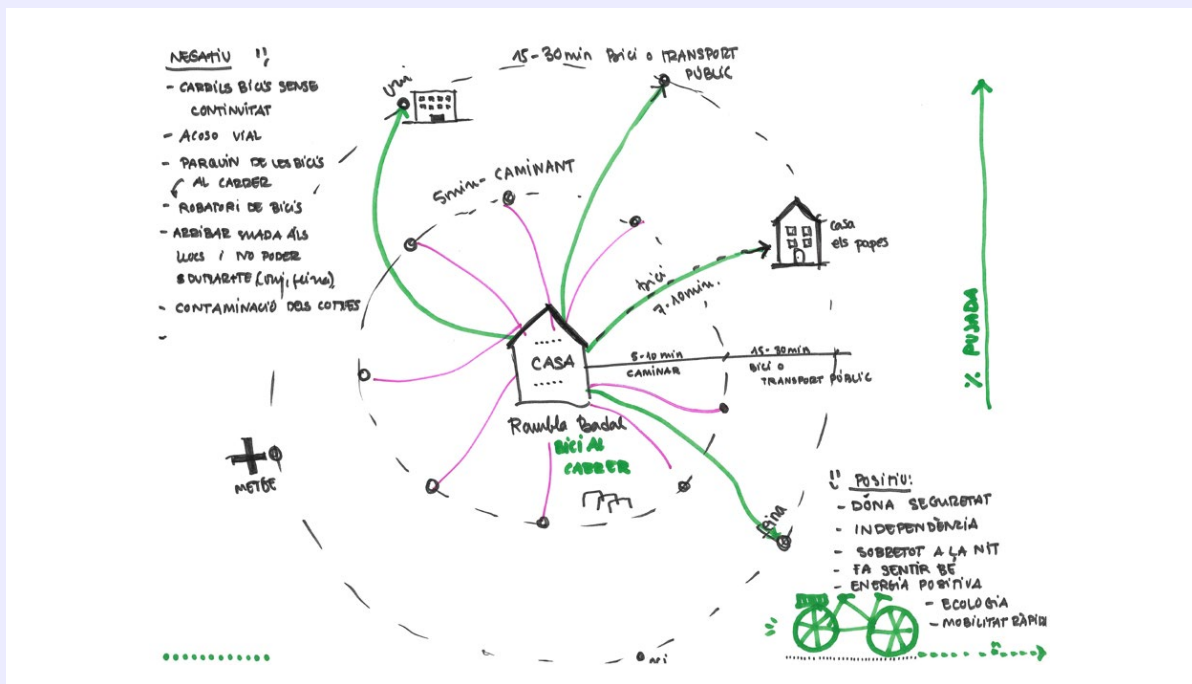 NEGATIU !!
- CARRILS BICIS SENSE
CONTINUITAT
- ACOSO VIAL
- PARQUIN DE LES BICIS
AL CARRER
- ROBATORI DE BICIS
- ARRIBAR SUADA ALS
LLOCS I NO PODER
DUTXARTE (uni, feina)
- CONTAMINACIÓ DELS COTXES
-
uni
15-30min BiCi o TRANSPORT
PÚBLIC
5min - CAMINANT
casa
els papes
bici
7-10min.
CASA
5-10 min
CAMINAR
15-30min
BiCi O
TRANSPORT PÚBLIC
Rambla Badal
BiCi AL
CARRER
METGE
feina
% PUJADA
!! POSITIU:
- DÓNA SEGURETAT
- INDEPENDÈNCIA
- SOBRETOT A LA NIT
- FA SENTIR BÉ
- ENERGIA POSITIVA
- ECOLOGIA
- MOBILITAT RÀPIDA